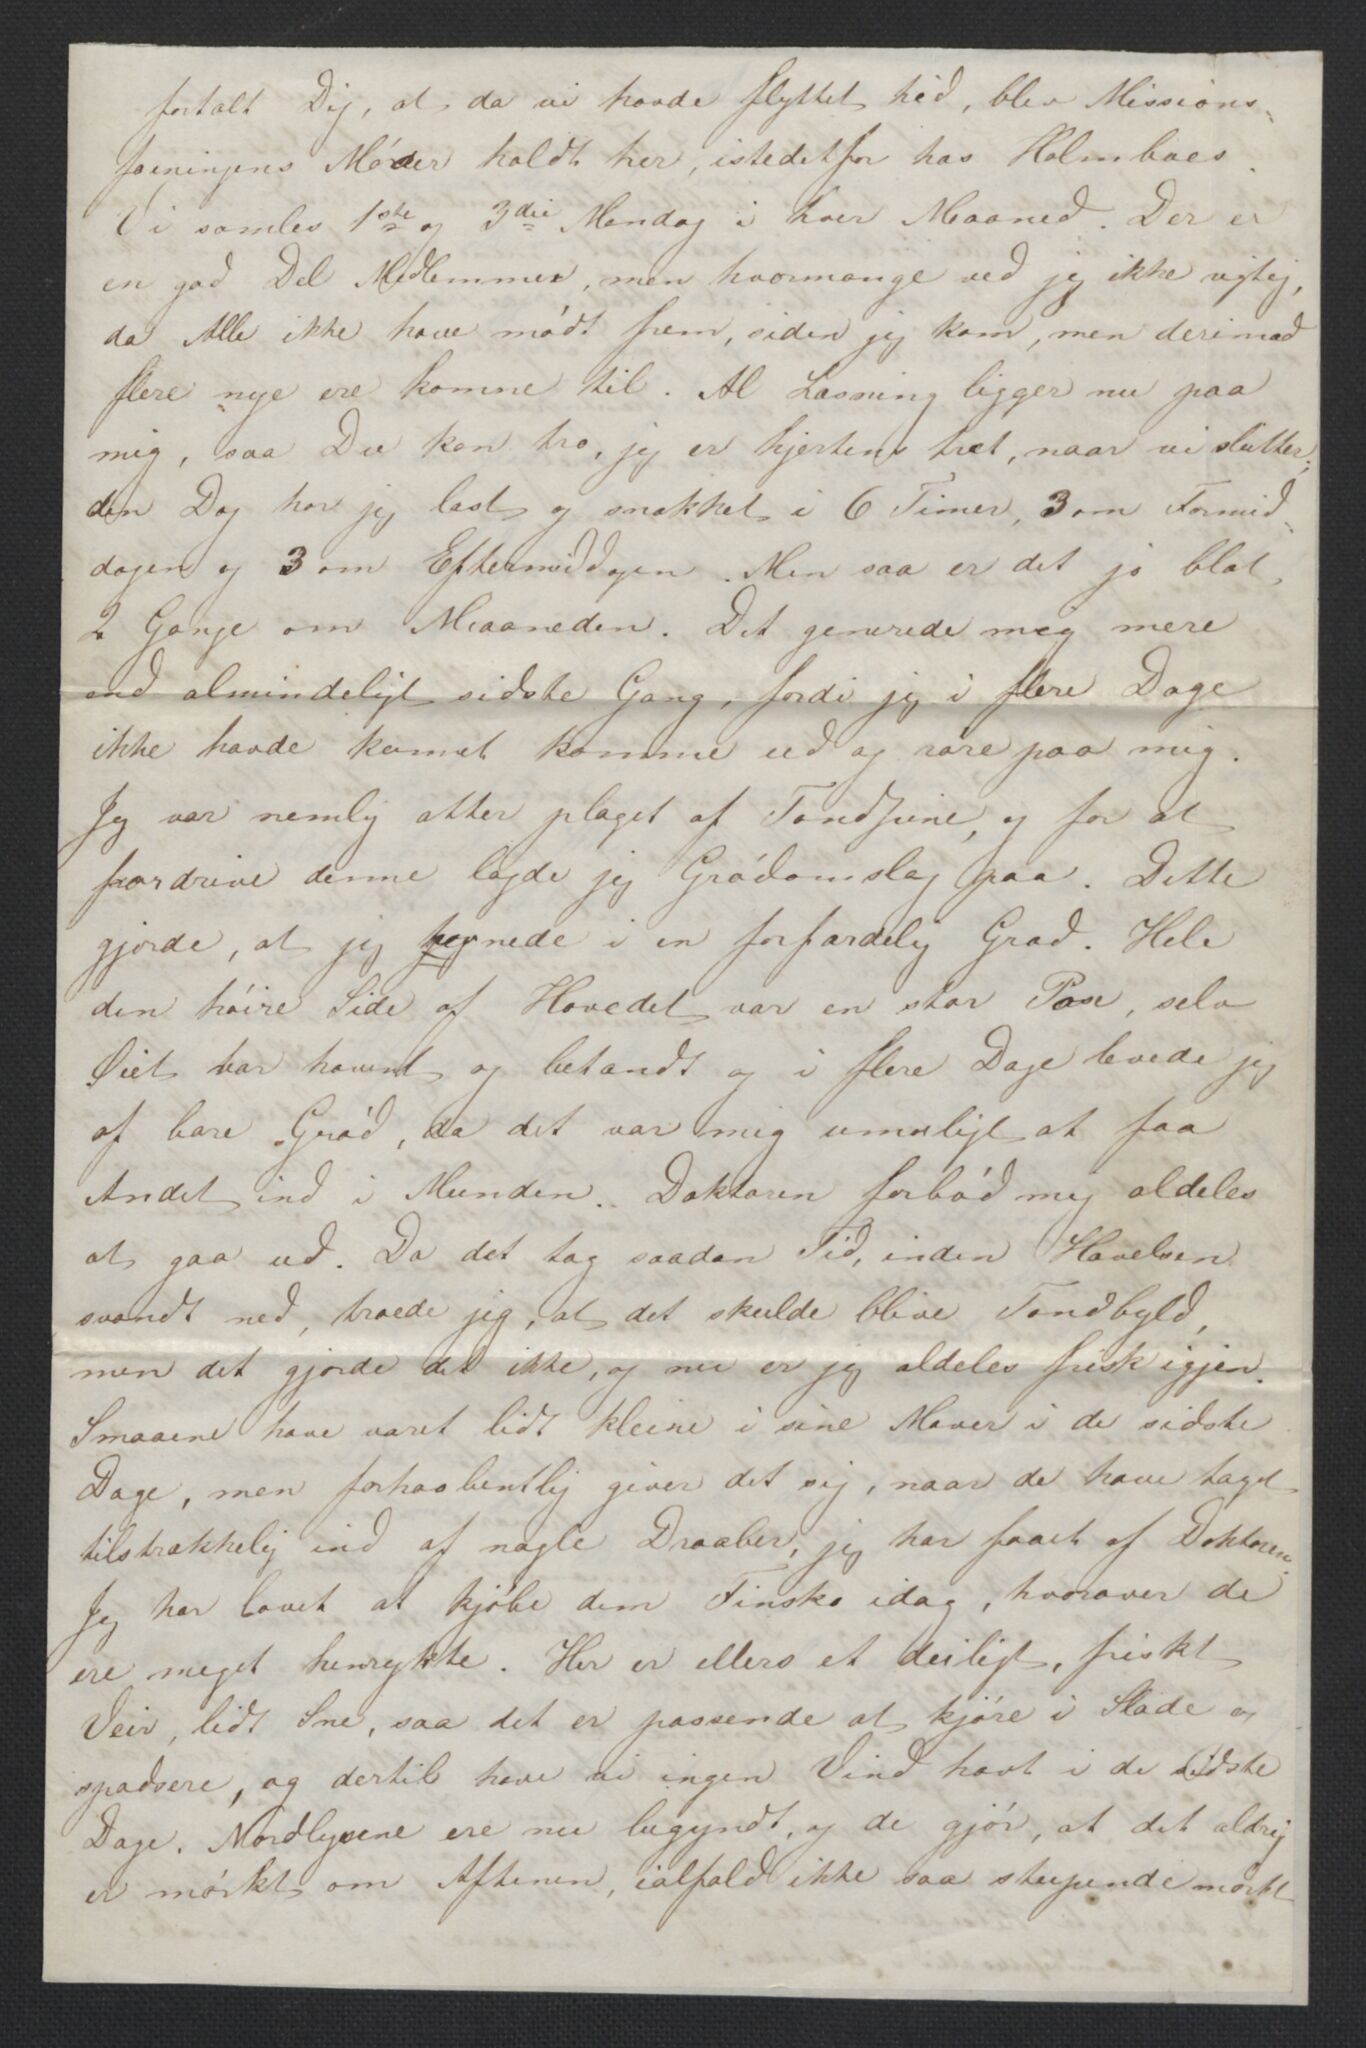 fortalt Dig, at da vi havde flyttet hid, blev Missions-
foreningens Møder holdt her, istedetfor hos Holmboes.
Vi samles 1ste og 3die Mandag i hver Maaned. Der er
en god Del Medlemmer, men hvormange ved jeg ikke rigtig,
da Alle ikke have mødt frem, siden jeg kom, men derimod
flere nye ere komne til. Al Læsning ligger nu paa
mig, saa Du kan tro, jeg er hjertens træt, naar vi slutter;
den Dag har jeg læst og snakket i 6 Timer, 3 om Formid-
dagen og 3 om Eftermiddagen. Men saa er det jo blot
2 Gange om Maaneden. Det generede mig mere
end almindeligt sidste Gang, fordi jeg i flere Dage
ikke havde kunnet komme ud og røre paa mig.
Jeg var nemlig atter plaget af Tandpine, og for at
fordrive denne lagde jeg Grødomslag paa. Dette
gjorde, at jeg hovnede i en forfærdelig Grad. Hele
den høire Side af Hovedet var en stor Pose, selv
Øiet var hovent og betændt og i flere Dage levede jeg
af bare Grød, da det var mig umuligt at faa
Andet ind i Munden. Doktoren forbød mig aldeles
at gaa ud. Da det tog saadan Tid, inden Hovelsen
svandt ned, troede jeg, at det skulde blive Tandbyld,
men det gjorde det ikke, og nu er jeg aldeles frisk igjen.
Smaaene have været lidt kleine i sine Maver i de sidste
Dage, men forhaabentlig giver det sig, naar de have taget
tilstrækkelig ind af nogle Draaber, jeg har faaet af Doktoren.
Jeg har lovet at kjøbe dem Finsko idag, hvorover de
ere meget henrykte. Her er ellers et deiligt, friskt
Veir, lidt Sne, saa det er passende at kjøre i Slæde og
spadsere, og dertil have vi ingen Vind havt i de sidste
Dage. Nordlysene ere nu begyndt, og de gjør, at det aldrig
er mørkt om Aftenen, ialfald ikke saa stupende mørkt